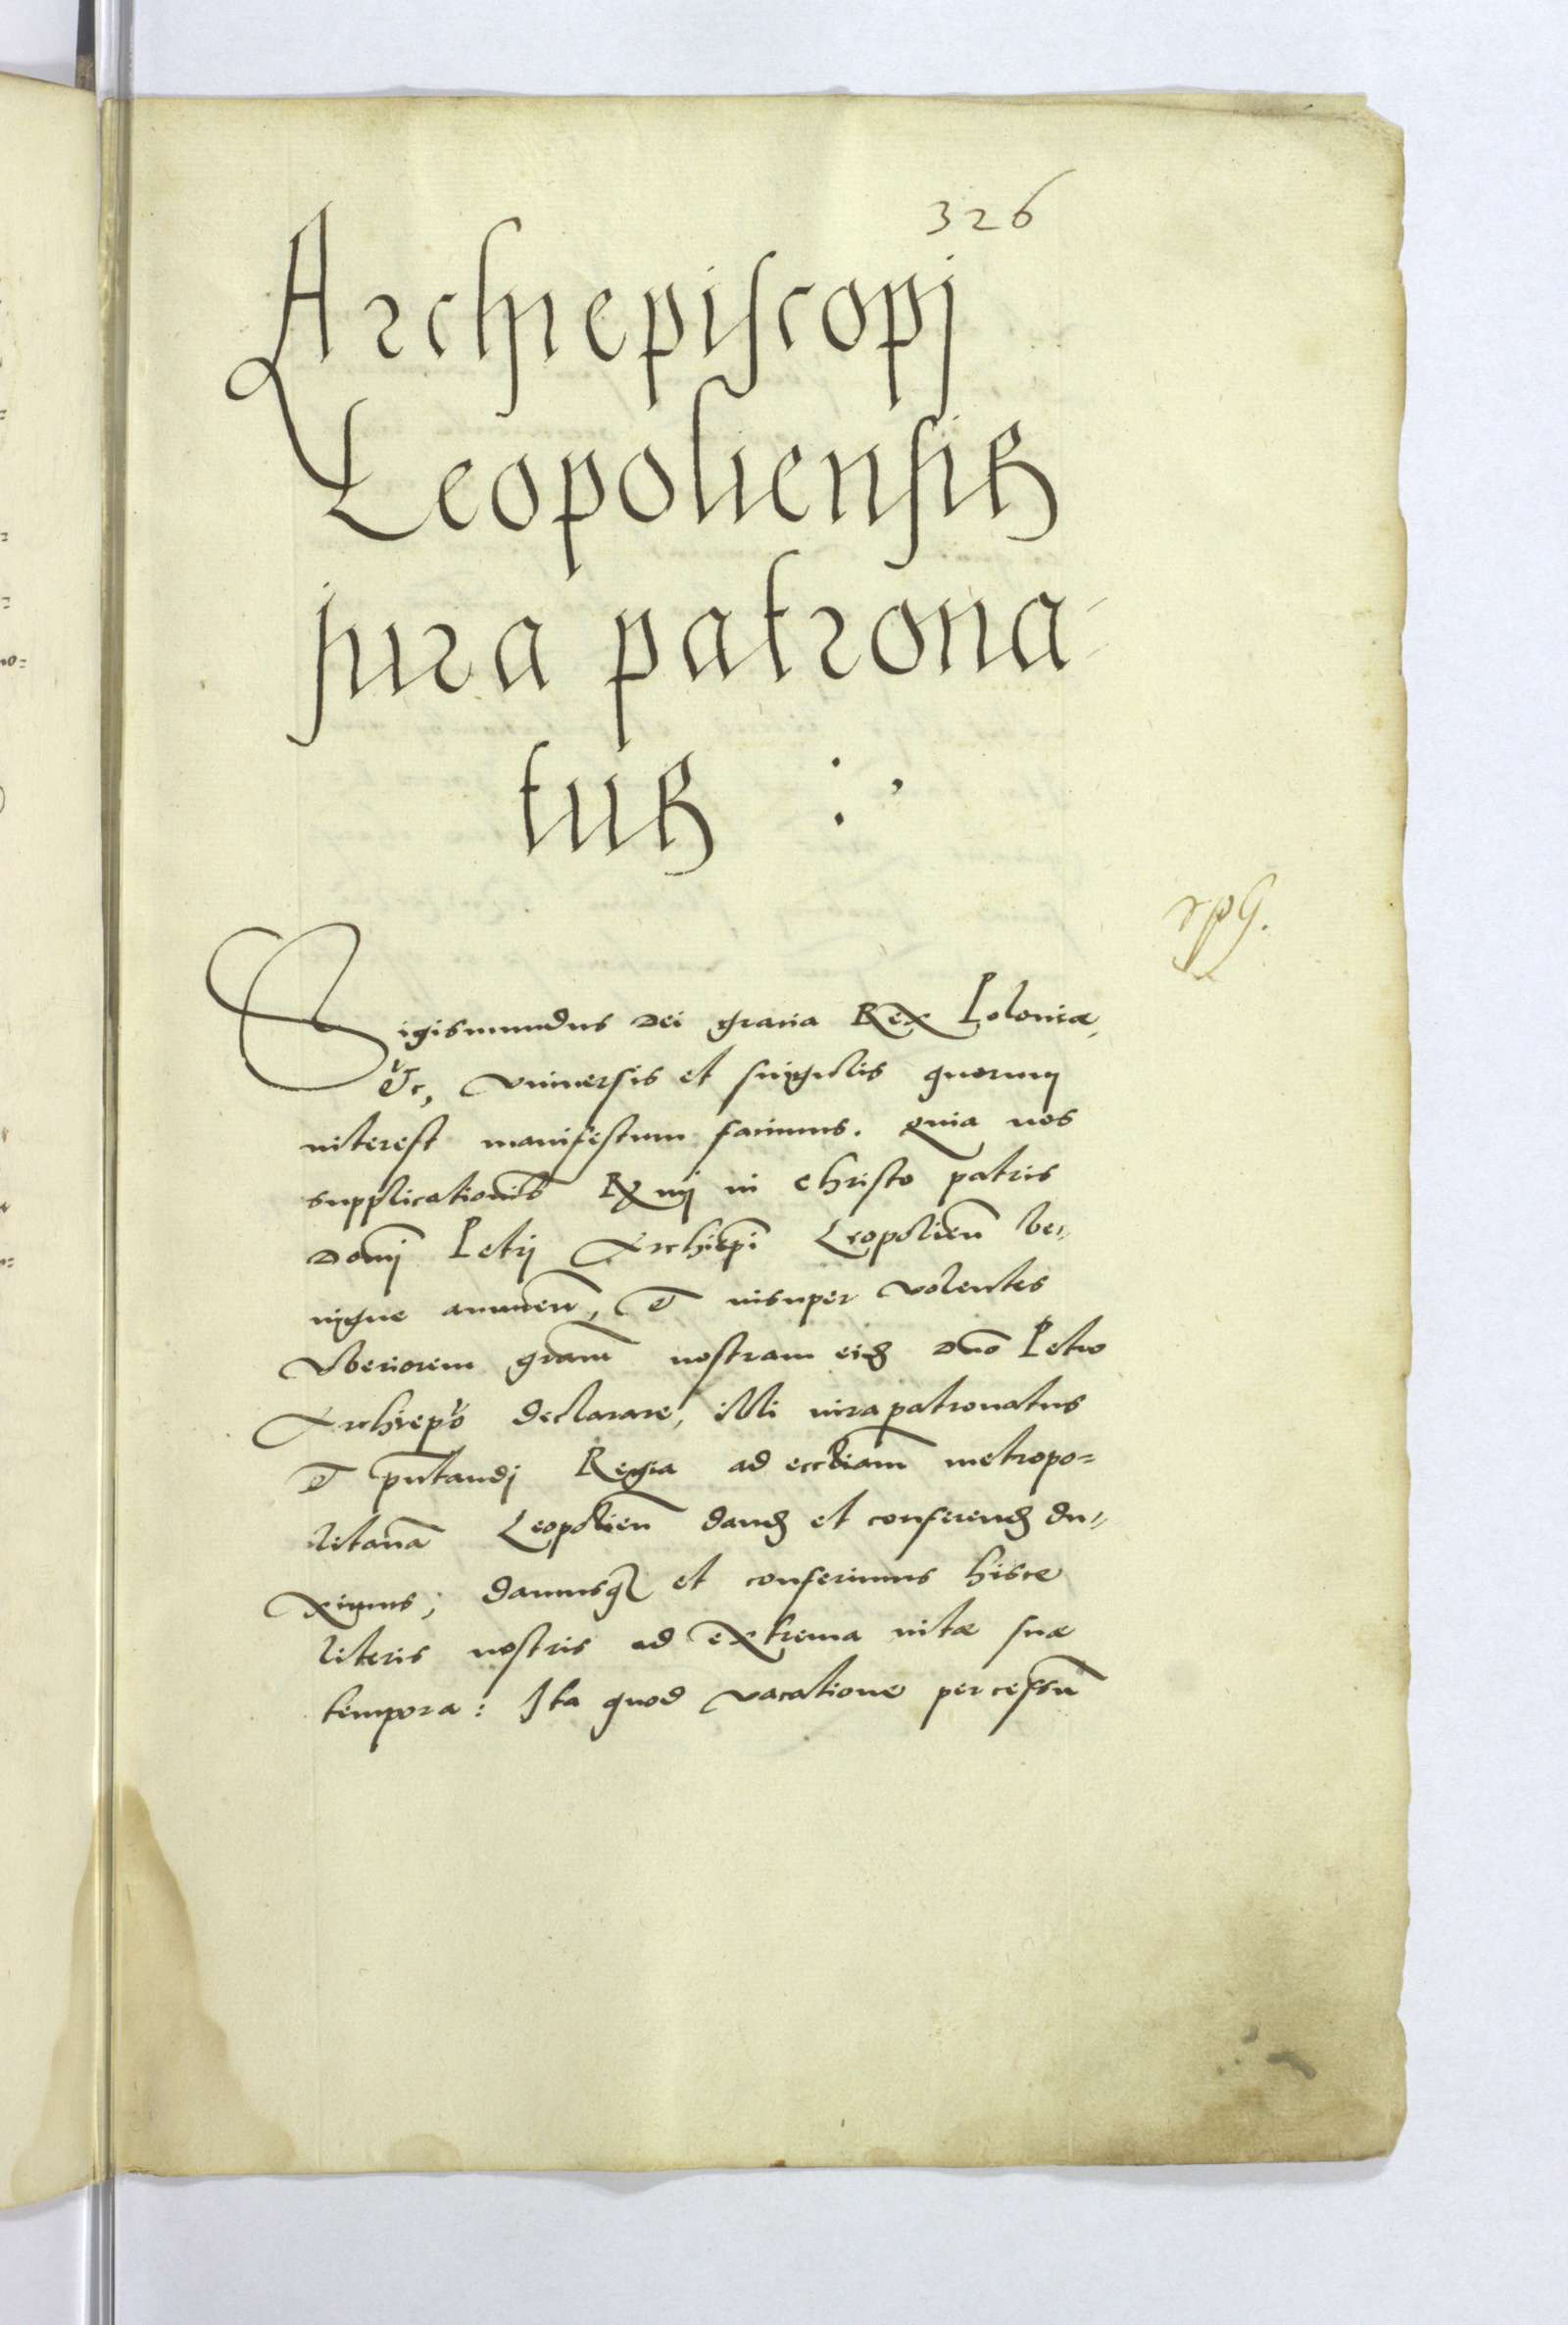 326
Archiepiscopj
Leopoliensis
jura patrona-
tus :,
Sigismundus Dei gratia Rex Poloniæ,
&c, vniuersis et singulis quorum
interest manifestum facimus. quia nos
supplicationib Rx mj in Christo patris
Domj Petrj Archiepi Leopolien̄ be=
nigne annuen̄, & insuper volentes
Vberiorem gram̄ nostram eid Dno Petro
Archiepo declarare, illi iura patronatus
& pn̄tandj Regia ad eccliam̄ metropo=
litanā Leopolien̄ dand et conferend du=
ximus; damusq et conferimus hisce
literis nostris ad extrema vitæ suæ
tempora: Ita quod vacatione per cessū